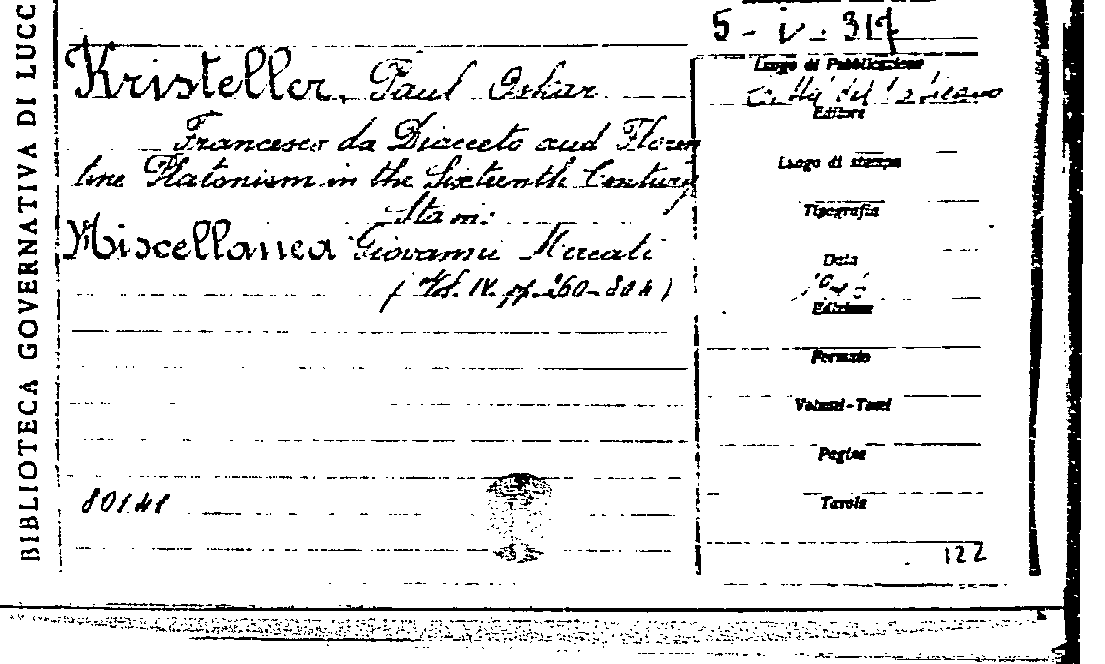 BIBLIOTECA GOVERNATIVA DI LUCC
5 - iv - 317
Kristeller, Paul Oskar
Francesco da Diacceto and Floren
tine Platonism in the Sixteenth Century
Stam:
Miscellanea Giovanni Mercati
(Vol. IV. pp. 260-304)
80141
Luogo di Pubblicazione
Città del Vaticano
Editore
Luogo di stampa
Tipografia
Data
Edizione
Formato
Volumi-Tomi
Pagine
Tavole
122